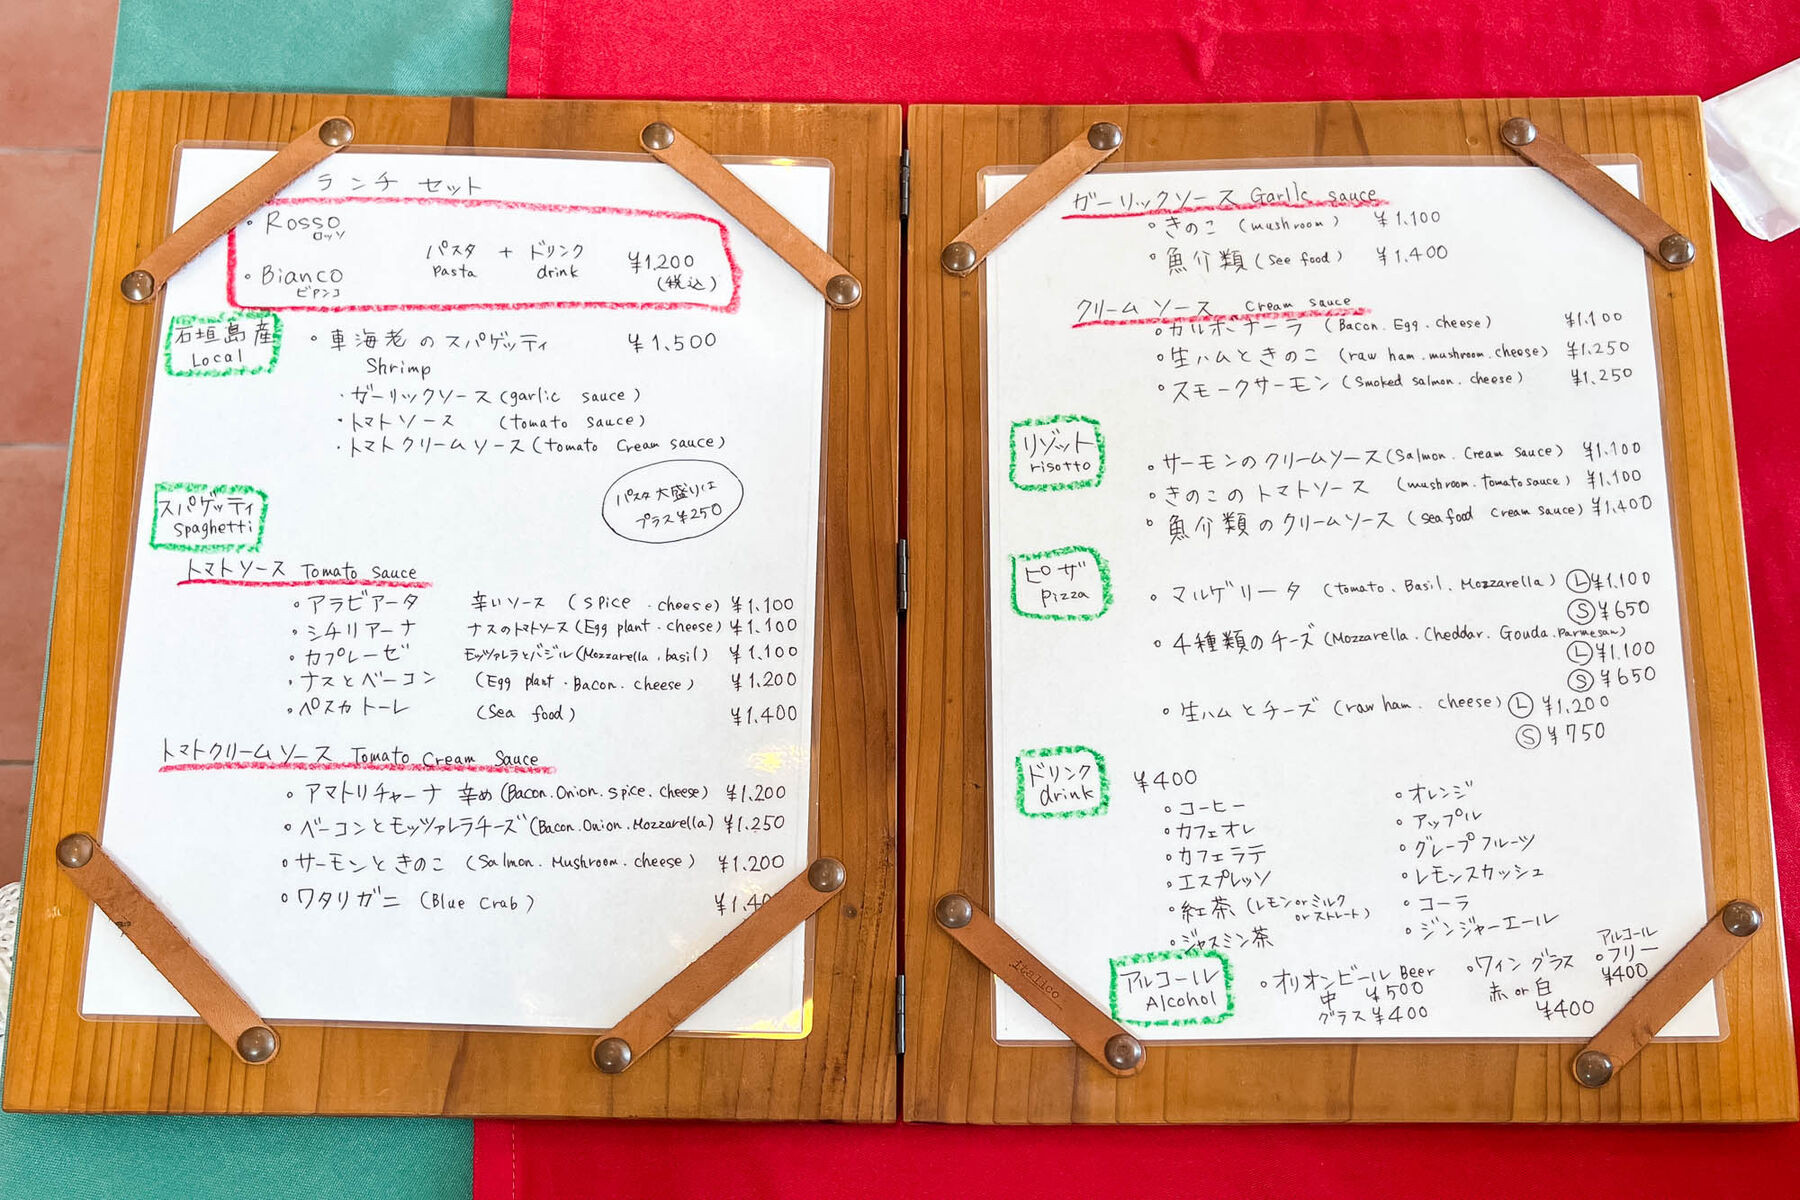 ランチ セット
・Rosso
ロッソ
パスタ + ドリンク ¥1,200
pasta drink (税込)
・Bianco
ビアンコ
石垣島産
Local
・車海老のスパゲッティ ¥1,500
Shrimp
・ガーリックソース (garlic sauce)
・トマトソース (tomato sauce)
・トマトクリームソース (tomato cream sauce)
パスタ大盛りは
プラス¥250
スパゲッティ
spaghetti
トマトソース Tomato sauce
・アラビアータ 辛いソース (spice・cheese) ¥1.100
・シチリアーナ ナスのトマトソース (Egg plant・cheese) ¥1.100
・カプレーゼ モッツァレラとバジル (Mozzarella・basil) ¥1.100
・ナスとベーコン (Egg plant・Bacon・cheese) ¥1.200
・ペスカトーレ (Sea food) ¥1.400
トマトクリームソース Tomato Cream Sauce
・アマトリチャーナ 辛め (Bacon.Onion.spice.cheese) ¥1.200
・ベーコンとモッツァレラチーズ (Bacon.Onion.Mozzarella) ¥1.250
・サーモンときのこ (Salmon.Mushroom.cheese) ¥1.200
・ワタリガニ (Blue Crab)
ガーリックソース Garlic sauce
・きのこ (mushroom) ¥1.100
・魚介類 (see food) ¥1.400
クリームソース Cream sauce
・カルボナーラ (Bacon.Egg.cheese) ¥1.100
・生ハムときのこ (raw ham.mushroom.cheese) ¥1.250
・スモークサーモン (Smoked salmon.cheese) ¥1.250
リゾット
risotto
・サーモンのクリームソース (Salmon.Cream sauce) ¥1.100
・きのこのトマトソース (mushroom.tomato sauce) ¥1.100
・魚介類のクリームソース (seafood cream sauce) ¥1.400
ピザ
pizza
・マルゲリータ (tomato.Basil.Mozzarella) Ⓛ¥1.100
Ⓢ¥650
・4種類のチーズ (Mozzarella.Cheddar.Gouda.Parmesan)
Ⓛ¥1.100
Ⓢ¥650
・生ハムとチーズ (raw ham.cheese) Ⓛ ¥1.200
Ⓢ ¥750
ドリンク
drink
¥400
・コーヒー
・カフェオレ
・カフェラテ
・エスプレッソ
・紅茶 (レモン or ミルク
or ストレート)
・ジャスミン茶
・オレンジ
・アップル
・グレープフルーツ
・レモンスカッシュ
・コーラ
・ジンジャーエール
アルコール
Alcohol
・オリオンビール Beer
中 ¥500
グラス ¥400
・ワイングラス
赤 or 白
¥400
アルコール
・フリー
¥400
italico